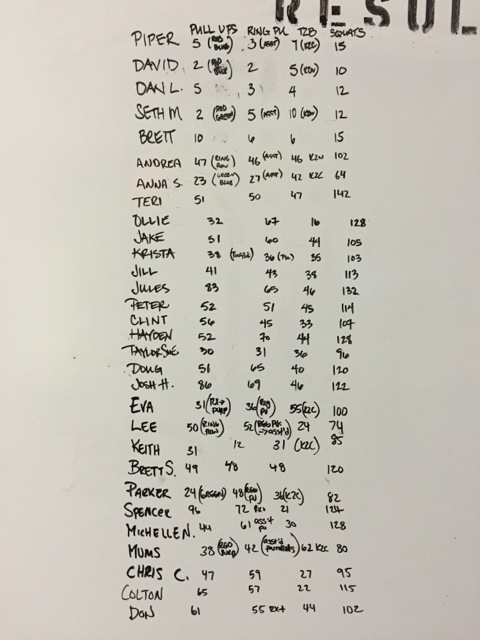 RESUL
PULL UPS RING PU T2B SQUATS
PIPER 5 3 (ASST) 7 (K2C) 15
DAVID 2 2 5 (K2W) 10
DAN L. 5 3 4 12
SETH M 2 (RED GREEN) 5 (ASST) 10 (K2W) 12
BRETT 10 6 6 15
ANDREA 47 (RING ROW) 46 (ASST) 46 K2W 102
ANNA S. 23 (GREEN BLUE) 27 (ASST) 42 K2C 64
TERI 51 50 47 142
OLLIE 32 67 16 128
JAKE 51 60 44 105
KRISTA 38 36 35 103
JILL 41 43 38 113
JULES 83 65 46 132
PETER 52 51 45 114
CLINT 56 45 33 107
HAYDEN 52 70 44 128
TAYLOR SUE 30 31 36 96
DOUG 51 65 40 120
JOSH H. 86 69 46 122
EVA 31 36 (REG PU) 55 (K2C) 100
LEE 50 (RING ROW) 52 (REG PU → asst'd) 24 74
KEITH 31 12 31 (K2C) 85
BRETT S. 49 48 48 120
PARKER 24 (GREEN) 48 (REG PU) 36 (K2C) 82
SPENCER 96 72 RX+ 21 124
MICHELLE N. 44 61 asst PU 30 128
MUMS 38 42 (asst'd) 62 K2C 80
CHRIS C. 47 59 27 95
COLTON 65 57 22 115
DON 61 55 RX+ 44 102